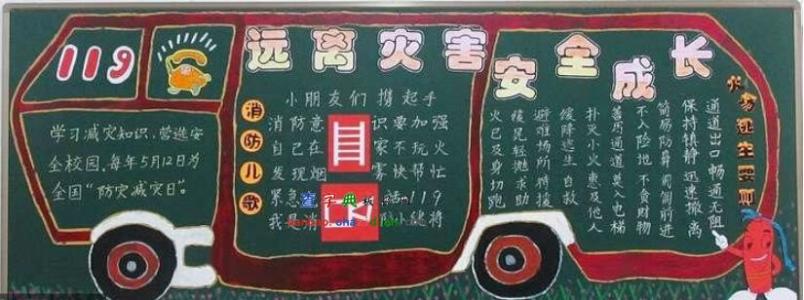 119
远离灾害
安全成长
学习减灾知识,营造安
全校园。每年5月12日为
全国“防灾减灾日”。
消防儿歌
小朋友们 携起手
消防意 识要加强
自己在 家不玩火
发现烟 雾快帮忙
紧急 话119
我是消 小健将
火场逃生要则
通道出口 畅通无阻
保持镇静 迅速撤离
简易防护 匍匐前进
不入险地 不贪财物
善用通道 莫入电梯
扑灭小火 惠及他人
缓降逃生 自救
避难场所 待援
缓晃轻抛 求助
火已及身 切跑